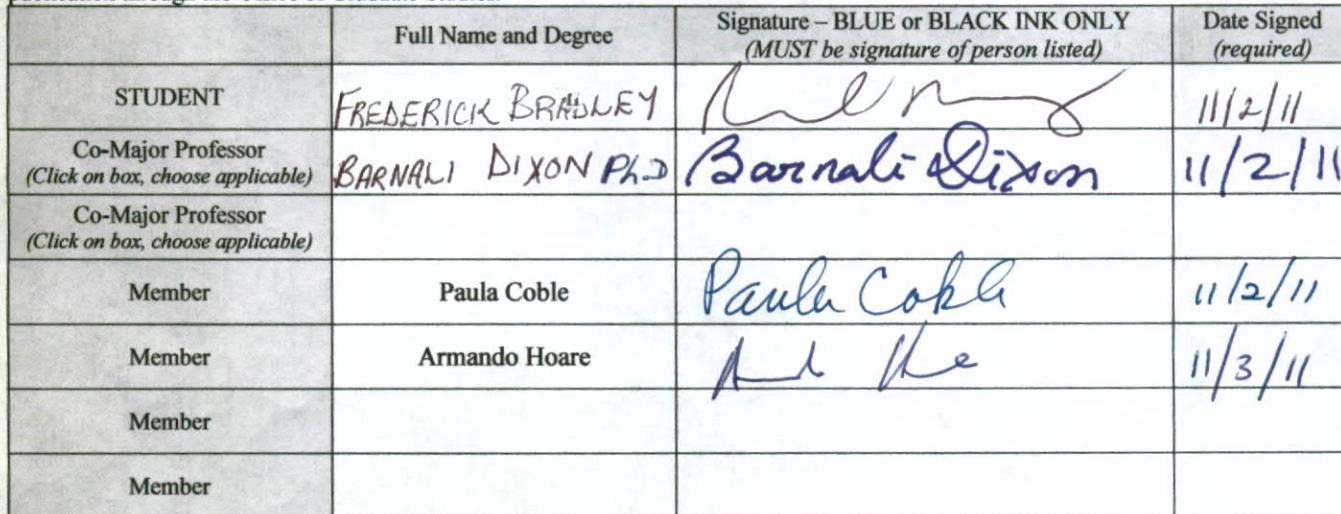 publication through the Office of Graduate Studies.
Full Name and Degree
Signature – BLUE or BLACK INK ONLY
(MUST be signature of person listed)
Date Signed
(required)
STUDENT
FREDERICK BRADLEY
11/2/11
Co-Major Professor
(Click on box, choose applicable)
BARNALI DIXON Ph.D
Barnali Dixon
11/2/11
Co-Major Professor
(Click on box, choose applicable)
Member
Paula Coble
Paula Coble
11/2/11
Member
Armando Hoare
11/3/11
Member
Member